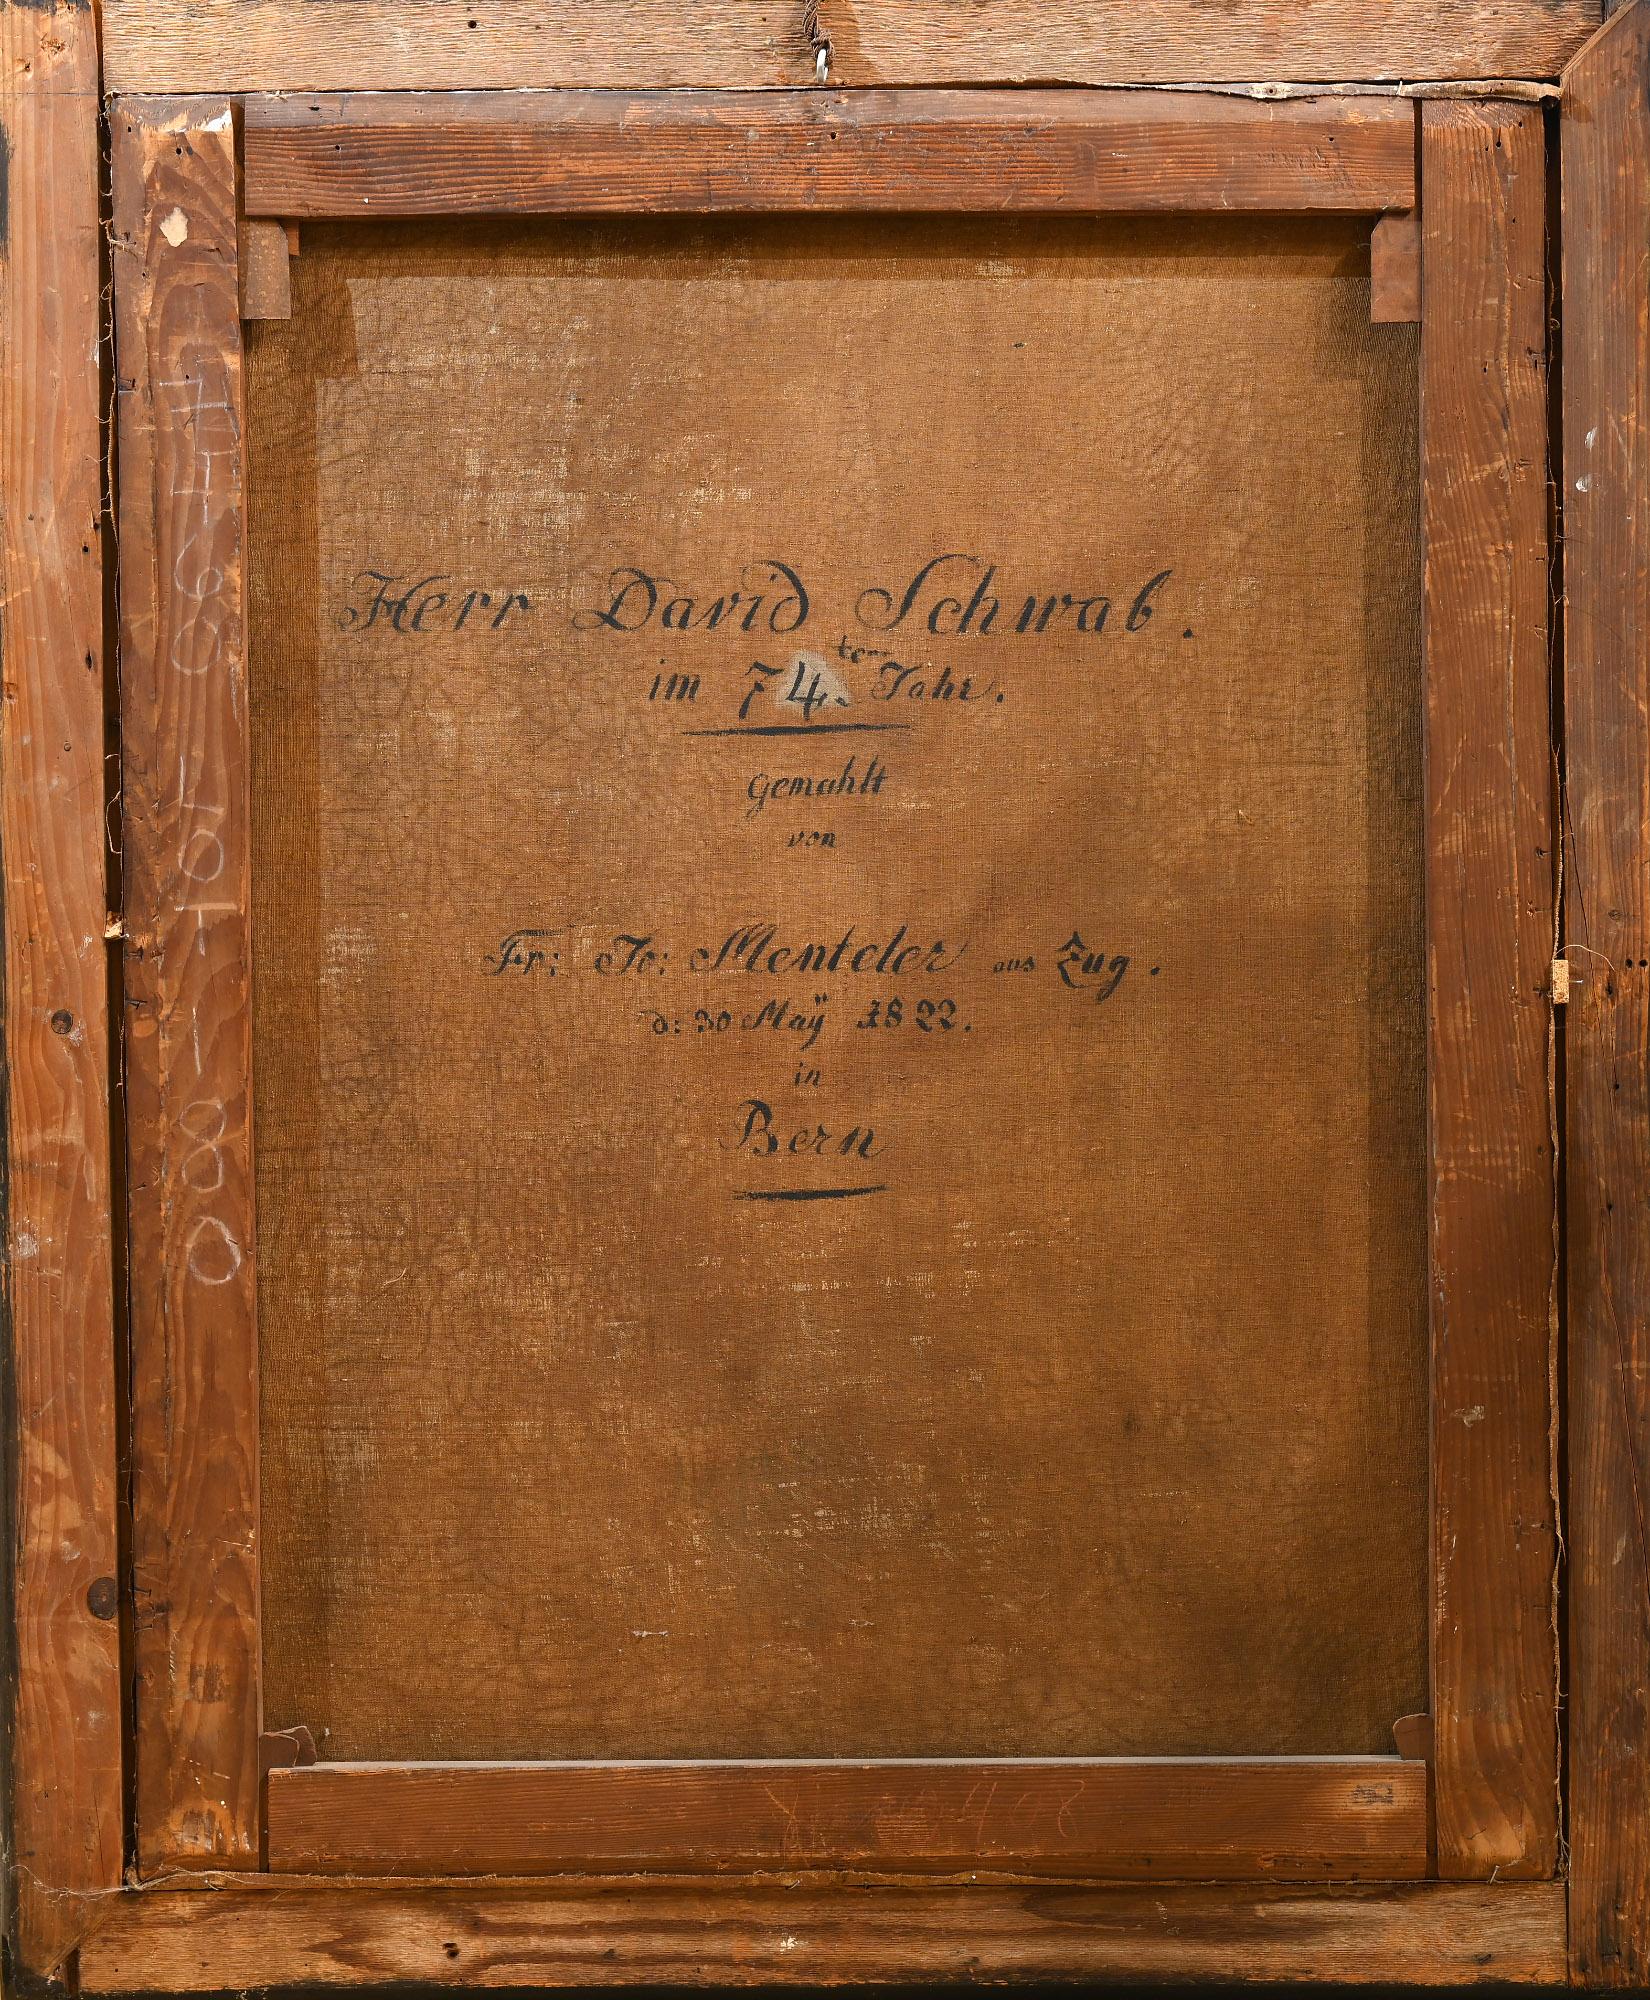 Herr David Schwab.
im 74.ten Jahr.
gemahlt
von
Fr: Jo: Menteler aus Zug.
d: 30 Maÿ 1822.
in
Bern